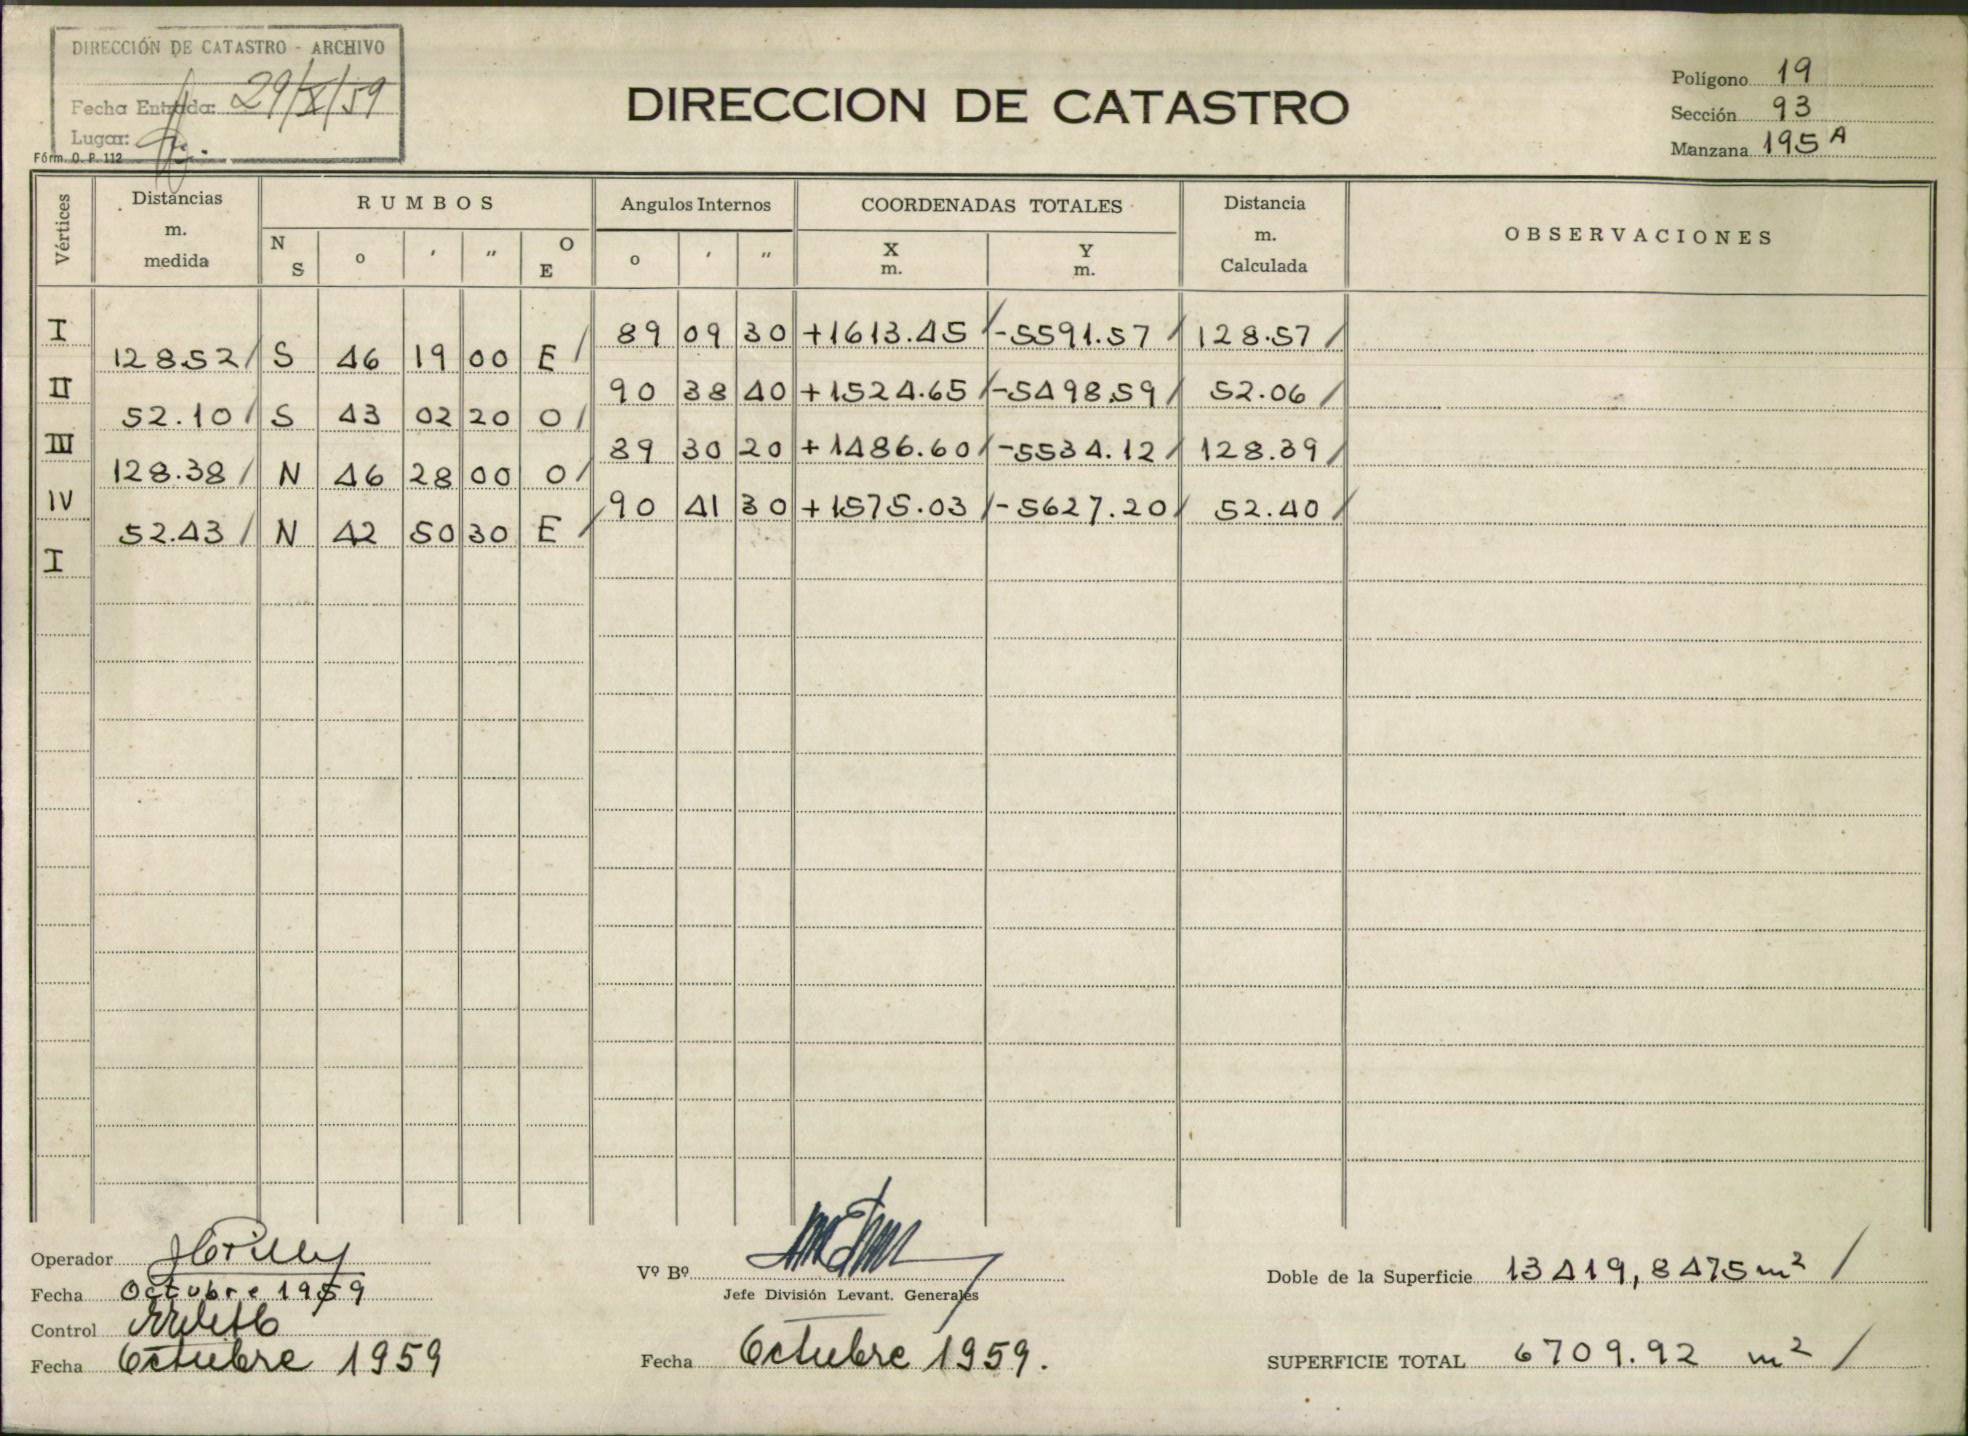 DIRECCIÓN DE CATASTRO - ARCHIVO
Fecha Entrada: 29/X/59
Lugar:
Fórm. O. P. 112
DIRECCION DE CATASTRO
Polígono 19
Sección 93
Manzana 195 A
Vértices Distancias m. medida RUMBOS Angulos Internos COORDENADAS TOTALES Distancia m. Calculada OBSERVACIONES
N S o ' " O E o ' " X m. Y m.
I 89 09 30 +1613.45 / -5591.57 / 128.57 /
128.52 / S 46 19 00 E /
II 90 38 40 +1524.65 / -5498.59 / 52.06 /
52.10 / S 43 02 20 O /
III 89 30 20 +1486.60 / -5534.12 / 128.39 /
128.38 / N 46 28 00 O /
IV 90 41 30 +1575.03 / -5627.20 / 52.40 /
52.43 / N 42 50 30 E /
I
Operador
Fecha Octubre 1959
Control
Fecha Octubre 1959
Vº Bº
Jefe División Levant. Generales
Fecha Octubre 1959.
Doble de la Superficie 13419,8475 m² /
SUPERFICIE TOTAL 6709.92 m² /